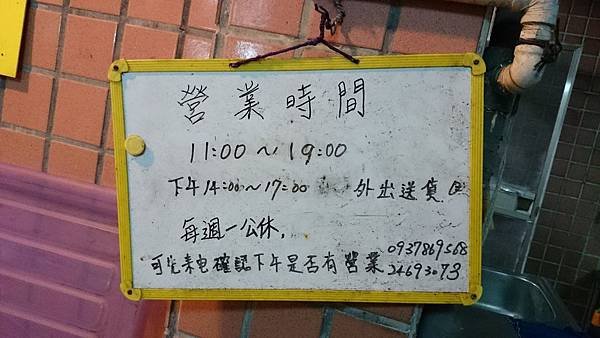 營業時間
11:00~19:00
下午14:00~17:00 外出送貨
每週一公休,
可先来电確認下午是否有營業 0937869568
24693073